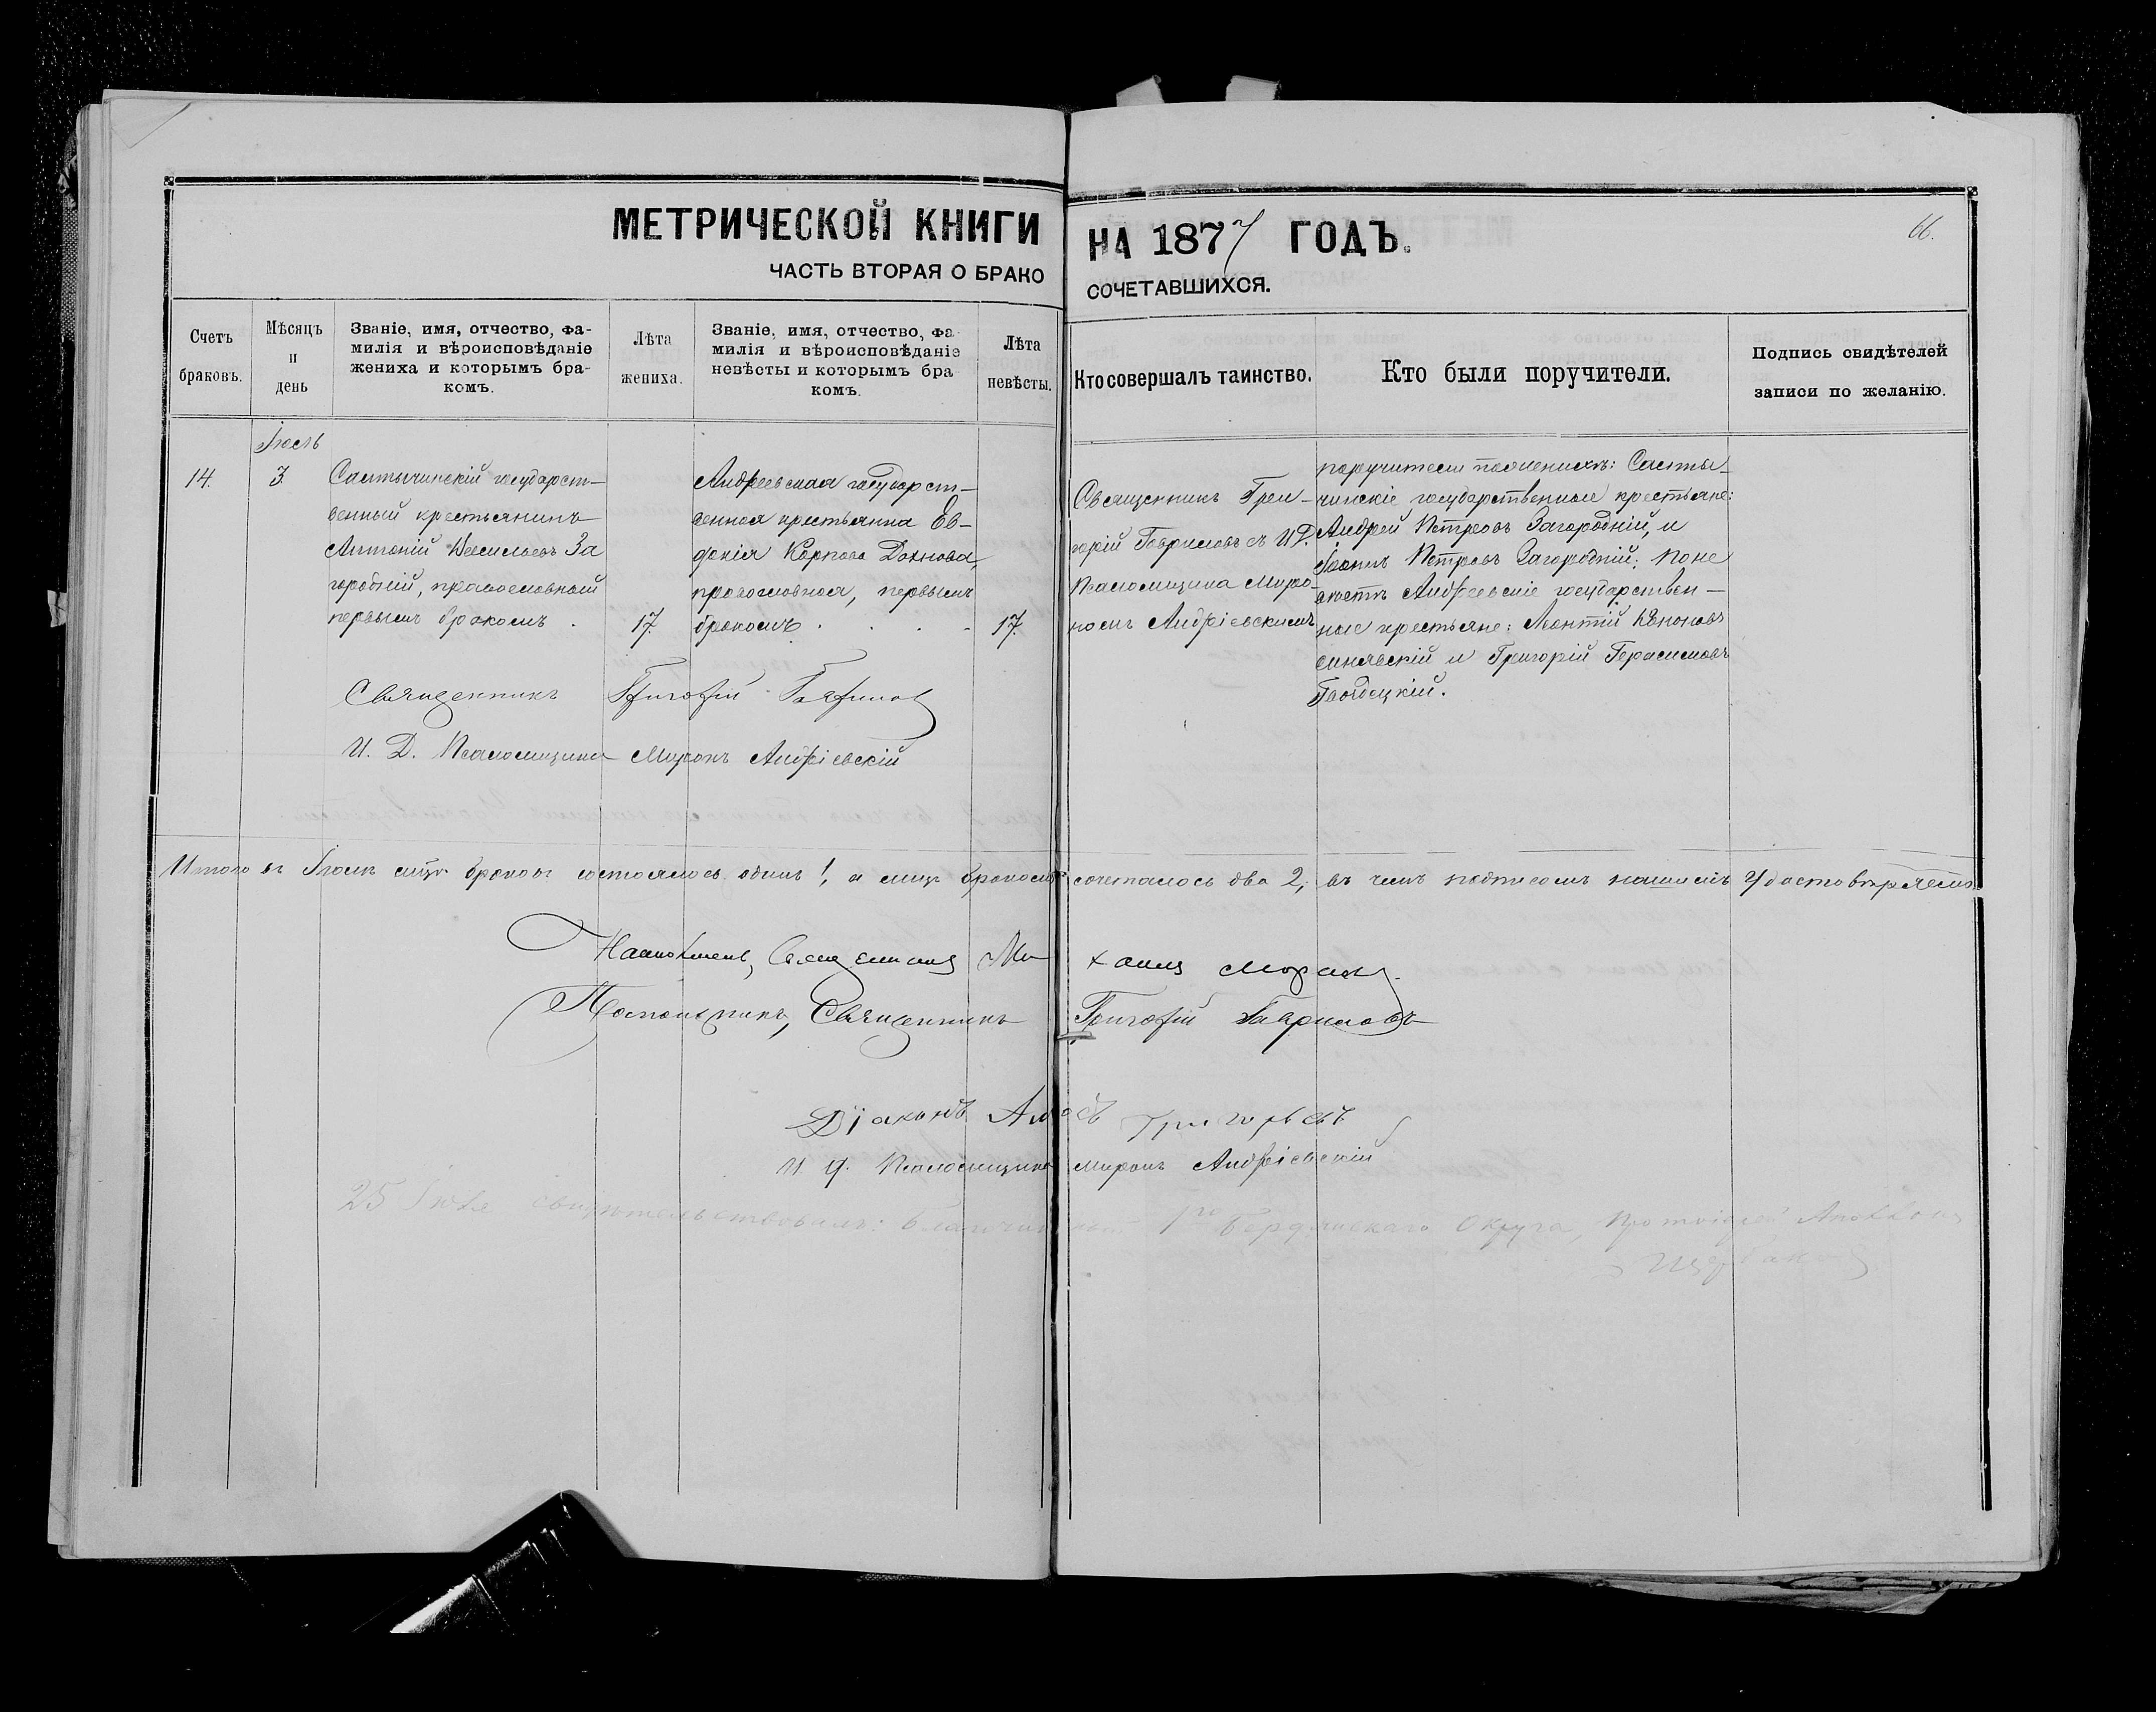 МЕТРИЧЕСКОЙ КНИГИ НА 1877 ГОДЪ.
66.
ЧАСТЬ ВТОРАЯ О БРАКО СОЧЕТАВШИХСЯ.
Счетъ браковъ.
Мѣсяцъ и день
Званіе, имя, отчество, фа-
милія и вѣроисповѣданіе
жениха и которымъ бра-
комъ.
Лѣта жениха.
Званіе, имя, отчество, фа
милія и вѣроисповѣданіе
невѣсты и которымъ бра
комъ.
Лѣта невѣсты.
Кто совершалъ таинство.
Кто были поручители.
Подпись свидѣтелей
записи по желанію.
Іюль
14.
3
Салтычинскій государст-
венный крестьянинъ
Антоній Васильевъ За
городній, православный
первымъ бракомъ.
17.
Андреевская государст-
венная крестьянка Ев-
докія Карпова Дахнова,
православная, первымъ
бракомъ.
17.
Священникъ Григ-
орій Гавриловъ съ И.Д.
Псаломщика Миро-
номъ Андріевскимъ
поручители по женихѣ: Салты-
чинскіе государственные крестьяне:
Андрей Петровъ Загородній, и
Іоаннъ Петровъ Загородній; по не
вѣстѣ Андреевскіе государствен-
ные крестьяне: Леонтій
Синявскій и Григорій Герасимовъ
Священникъ Григорій Гаврилов
И. Д. Псаломщика Миронъ Андріевскій
Итого въ Іюлѣ мѣс. браковъ состоялось одинъ 1, а лицъ бракомъ сочеталось два 2, въ чемъ подписомъ нашимъ удостовѣряемъ.
Настоятель, Священникъ Ми хаилъ
Помощникъ, Священникъ Григорій Гавриловъ
Діаконъ Григорьевъ
И Д. Псаломщика Миронъ Андріевскій
25 Іюля свидѣтельствовалъ: Благочинный 1го Бердянскаго Округа, Протоіерей